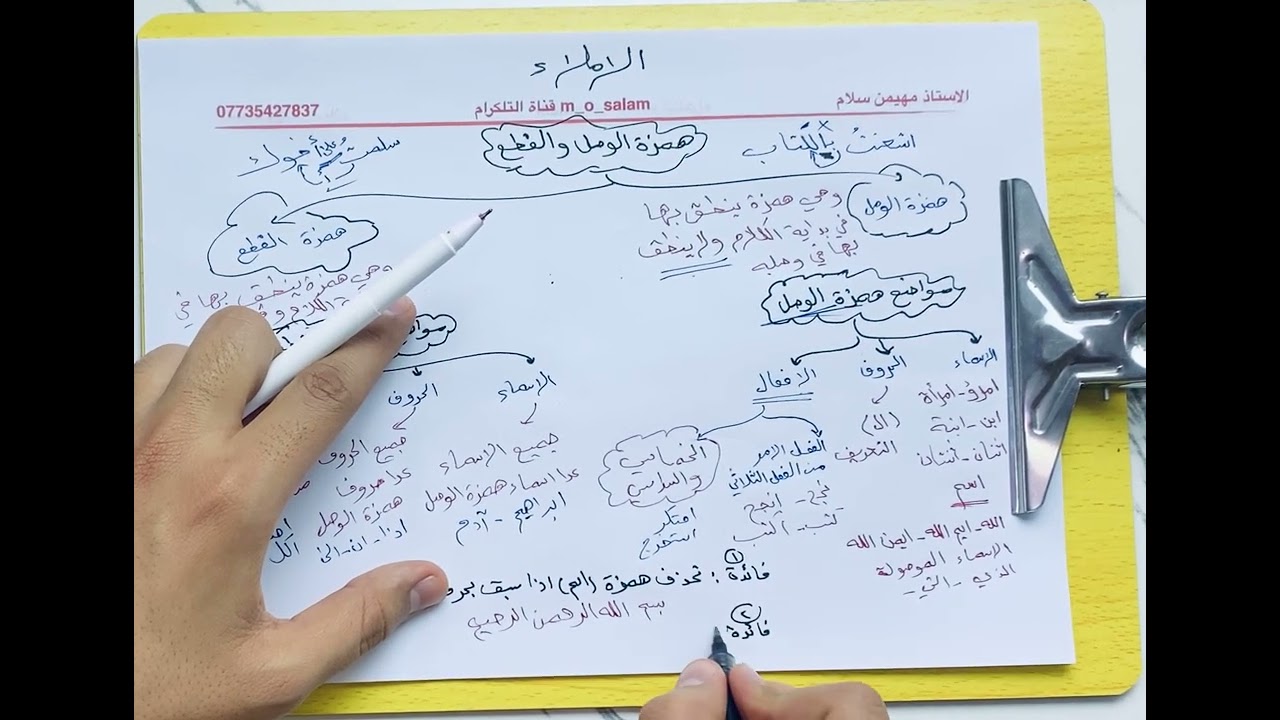 الاملاء
الاستاذ مهيمن سلام
m_o_salam قناة التلكرام
07735427837
همزة الوصل والقطع
بالكتاب
أخوك
همزة الوصل
وهي همزة ينطق بها
في بداية الكلام ولا ينطق
بها في وصله
مواضع همزة الوصل
الاسماء
امرؤ - امرأة
ابن - ابنة
اثنان - اثنتان
اسم
الله - ايم الله - ايمن الله
الاسماء الموصولة
الذي - التي -
الحروف
(ال)
التعريف
الافعال
الفعل الامر
من الفعل الثلاثي
نجح - إنجح
كتب - اكتب
الخماسي
والسداسي
ابتكر
استخرج
همزة القطع
وهي همزة ينطق بها في
الكلام
الاسماء
جميع الاسماء
عدا اسماء همزة الوصل
ابراهيم - آدم
الحروف
جميع الحروف
عدا حروف
همزة الوصل
اذا - ان - الى
اكل
فائدة ١ : تحذف همزة (اسم) اذا سبق بحر
بسم الله الرحمن الرحيم
فائدة ٢ :